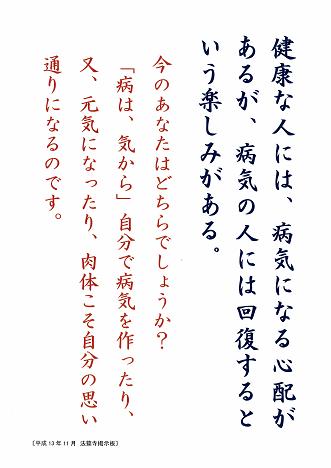 健康な人には、病気になる心配が
あるが、病気の人には回復すると
いう楽しみがある。
今のあなたはどちらでしょうか?
「病は、気から」自分で病気を作ったり、
又、元気になったり、肉体こそ自分の思い
通りになるのです。
〔平成13年11月 法龍寺掲示板〕